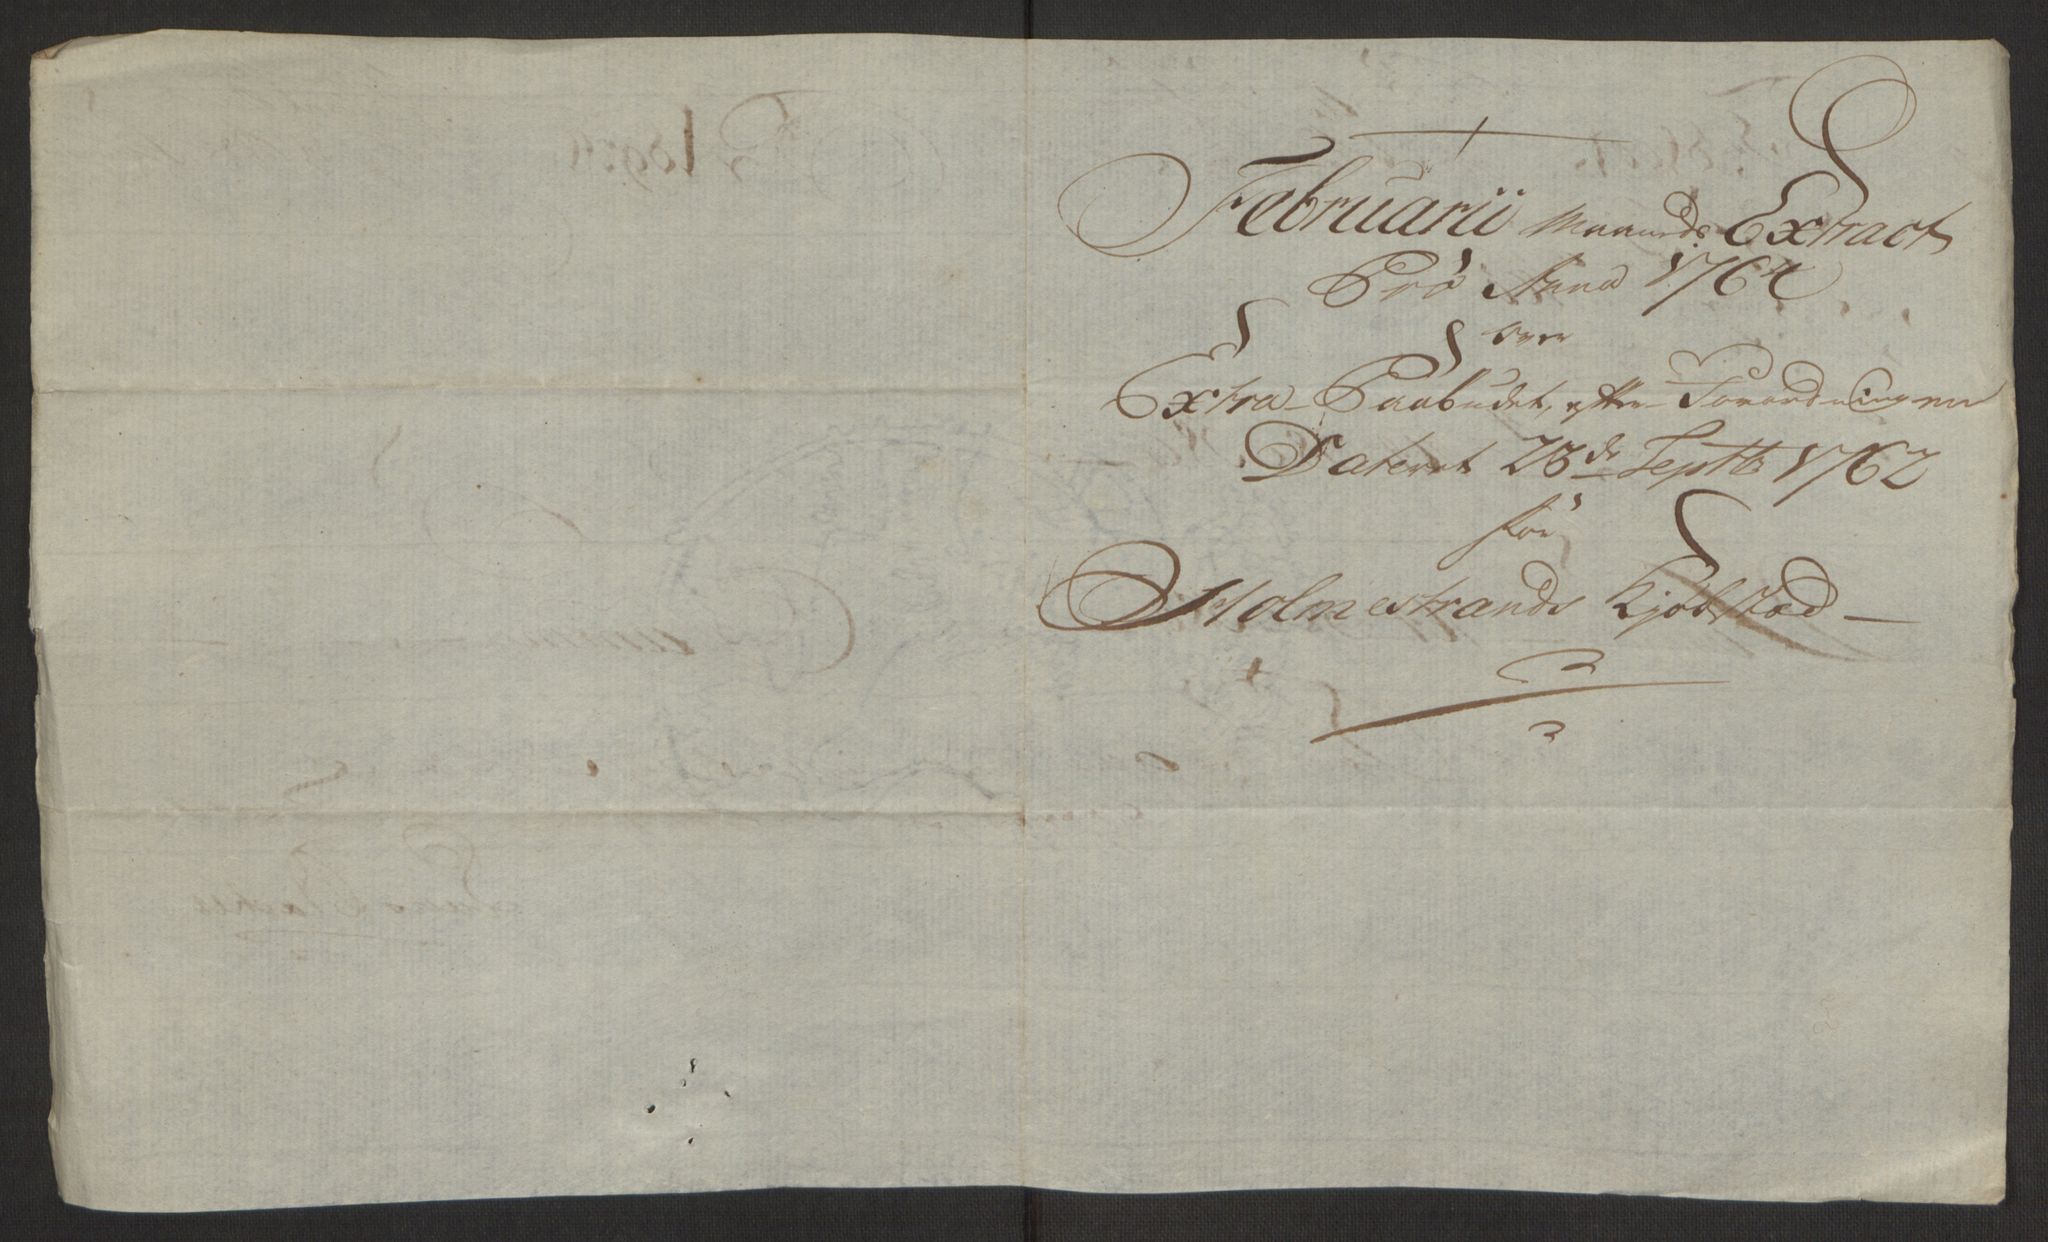 Februarii Maaneds Extract
Pro Anno 1764
Over
Extra Paabudet, efter Forordningen
Dateret 23de Septbr 1762
for
Holmestrands Kjøbstæd